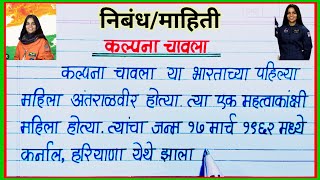 निबंध/माहिती
कल्पना चावला
कल्पना चावला या भारताच्या पहिल्या
महिला अंतराळवीर होत्या. त्या एक महत्वाकांक्षी
महिला होत्या. त्यांचा जन्म १७ मार्च १९६२ मध्ये
कर्नाल, हरियाणा येथे झाला